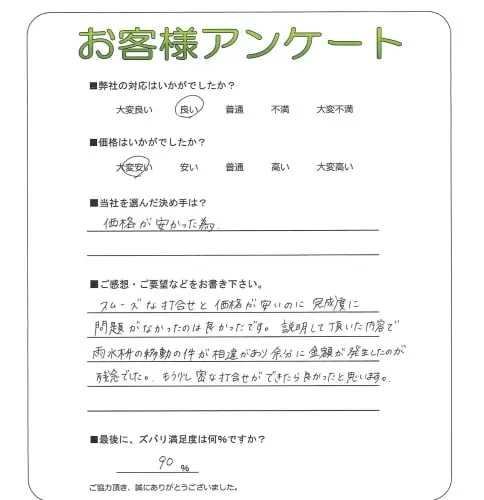 お客様アンケート
■弊社の対応はいかがでしたか？
大変良い 良い 普通 不満 大変不満
■価格はいかがでしたか？
大変安い 安い 普通 高い 大変高い
■当社を選んだ決め手は？
価格が安かった為.
■ご感想・ご要望などをお書き下さい。
スムーズな打合せと価格が安いのに完成度に
問題がなかったのは良かったです。説明して頂いた内容で
雨水枡の移動の件が相違があり余分に金額が発生したのが
残念でした。もう少し密な打合せができたら良かったと思います。
■最後に、ズバリ満足度は何%ですか？
90 %
ご協力頂き、誠にありがとうございました。